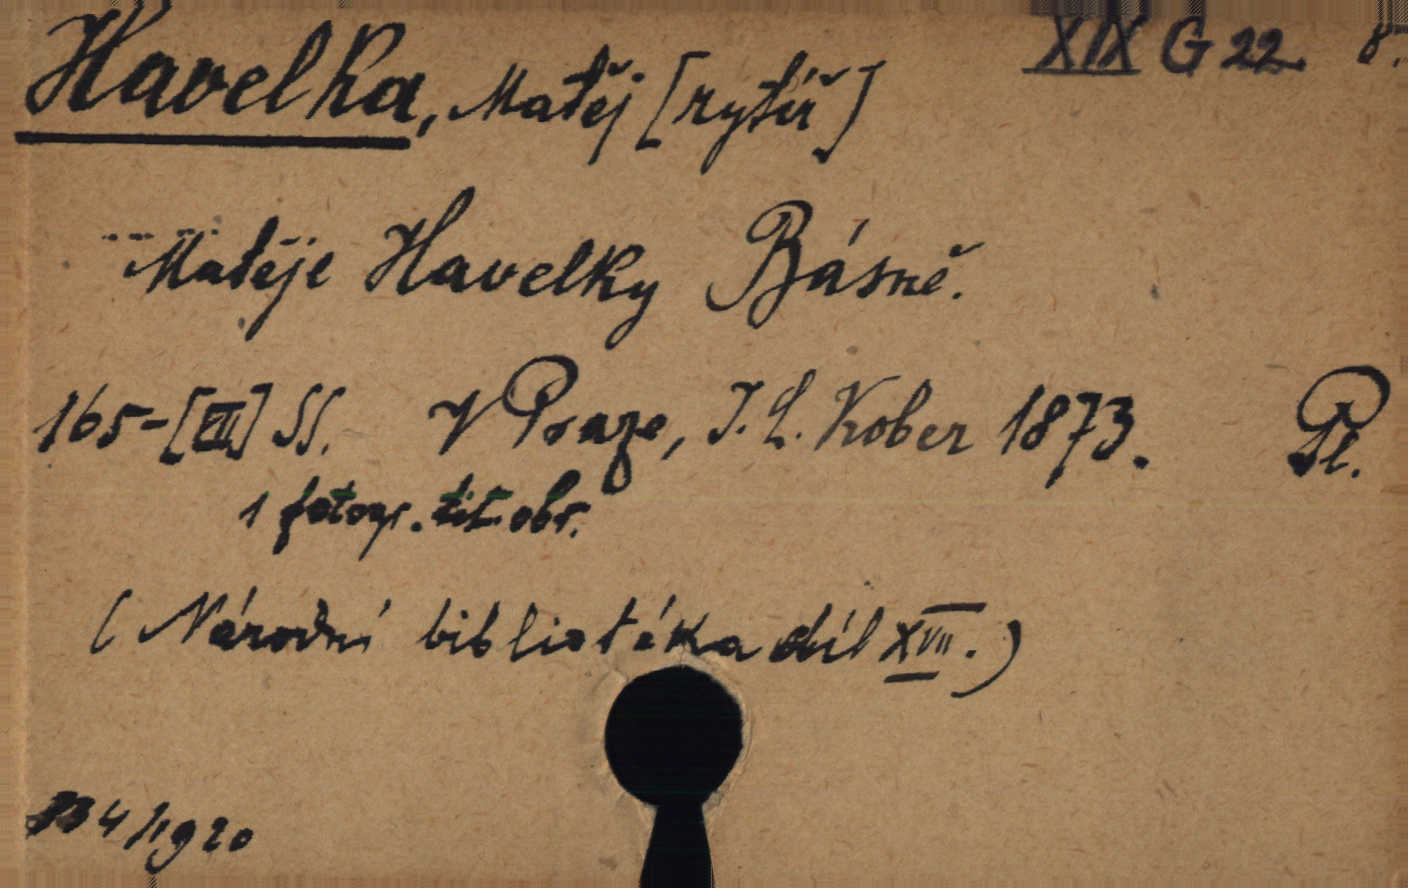 XIX G 22. 8°
Havelka, Matěj [rytíř]
Matěje Havelky Básně.
165-[VII] SS. V Praze, I. L. Kober 1873. Pl.
1 fotogr. tit. obr.
(Národní bibliotéka díl XVII.)
4/1920